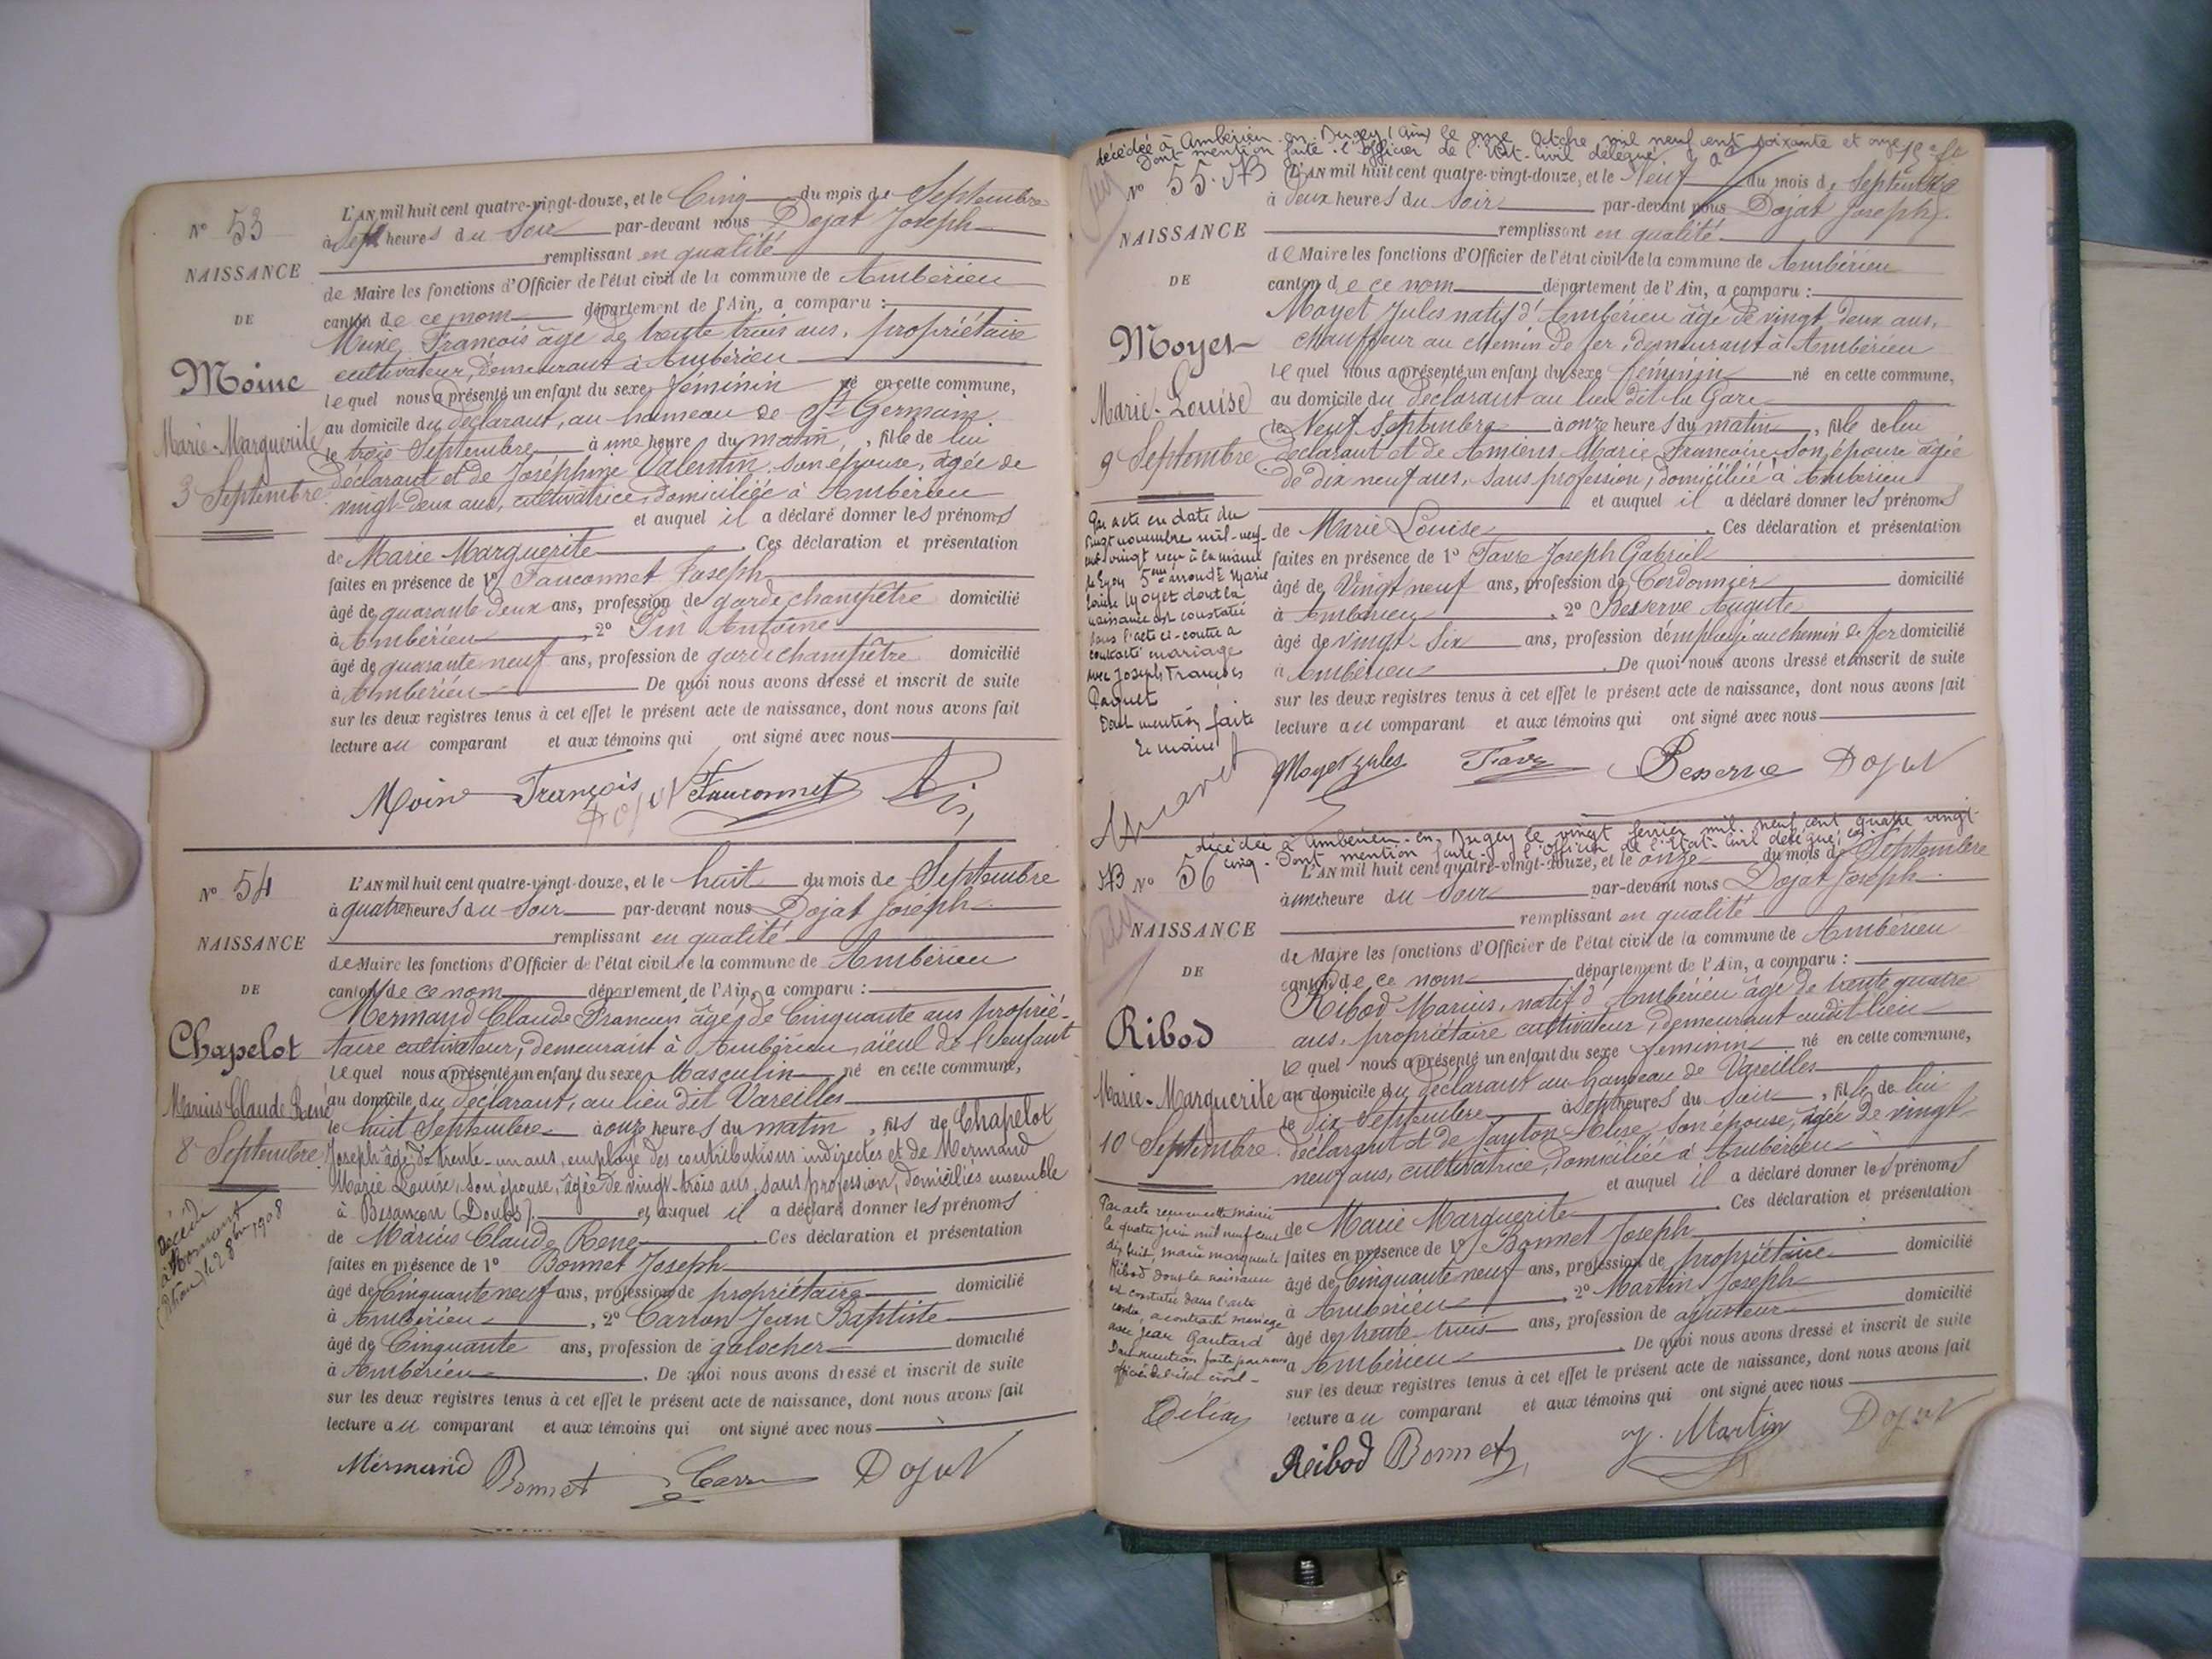 N° 53
NAISSANCE
DE
Moine
Marie-Marguerite
3 Septembre
L'AN mil huit cent quatre-vingt-douze, et le Cinq du mois de Septembre
à Sept heures du Soir par-devant nous Dojat Joseph
remplissant en qualité
de Maire les fonctions d'Officier de l'état civil de la commune de Ambérieu
canton de ce nom département de l'Ain, a comparu :
Moine François âgé de trente trois ans, propriétaire
cultivateur, demeurant à Ambérieu
lequel nous a présenté un enfant du sexe féminin né en cette commune,
au domicile du déclarant, au hameau de St Germain
le trois Septembre à une heure du matin, fille de lui
déclarant et de Joséphine Valentin son épouse, âgée de
vingt-deux ans, cultivatrice, domiciliée à Ambérieu
et auquel il a déclaré donner les prénoms
de Marie Marguerite. Ces déclaration et présentation
faites en présence de 1° Fauconnet Joseph
âgé de quarante deux ans, profession de garde champêtre domicilié
à Ambérieu, 2° Pin Antoine
âgé de quarante neuf ans, profession de garde champêtre domicilié
à Ambérieu. De quoi nous avons dressé et inscrit de suite
sur les deux registres tenus à cet effet le présent acte de naissance, dont nous avons fait
lecture au comparant et aux témoins qui ont signé avec nous
Moine François Dojat Fauconnet Pin
N° 54
NAISSANCE
DE
Chapelot
Marius Claude René
8 Septembre
décédé
le 28 8bre 1908
L'AN mil huit cent quatre-vingt-douze, et le huit du mois de Septembre
à quatre heures du Soir par-devant nous Dojat Joseph
remplissant en qualité
de Maire les fonctions d'Officier de l'état civil de la commune de Ambérieu
canton de ce nom département de l'Ain, a comparu :
Mermand Claude François âgé de Cinquante ans proprié-
taire cultivateur, demeurant à Ambérieu, aïeul de l'enfant
lequel nous a présenté un enfant du sexe Masculin né en cette commune,
au domicile du déclarant, au lieu dit Vareilles
le huit Septembre à onze heures du matin, fils de Chapelot
Joseph âgé de trente-un ans, employé des contributions indirectes et de Mermand
Marie Louise, son épouse, âgée de vingt-trois ans, sans profession, domiciliés ensemble
à Besançon (Doubs). et auquel il a déclaré donner les prénoms
de Marius Claude René. Ces déclaration et présentation
faites en présence de 1° Bonnet Joseph
âgé de Cinquante neuf ans, profession de propriétaire domicilié
à Ambérieu, 2° Carron Jean Baptiste
âgé de Cinquante ans, profession de galocher domicilié
à Ambérieu. De quoi nous avons dressé et inscrit de suite
sur les deux registres tenus à cet effet le présent acte de naissance, dont nous avons fait
lecture au comparant et aux témoins qui ont signé avec nous
Mermand Bonnet Carron Dojat
décédée à Ambérieu-en-Bugey (Ain) le onze Octobre mil neuf cent soixante et onze
Dont mention faite. l'Officier de l'Etat-Civil délégué
N° 55
NAISSANCE
DE
Moyet
Marie-Louise
9 Septembre
Par acte en date du
vingt novembre mil-neuf-
cent vingt reçu à la mairie
de Lyon 5ème arrondt Marie
Louise Moyet dont la
naissance est constatée
dans l'acte ci-contre a
contracté mariage
avec Joseph François
Paquet
Dont mention faite
Le maire
L'AN mil huit cent quatre-vingt-douze, et le Neuf du mois de Septembre
à deux heures du Soir par-devant nous Dojat Joseph
remplissant en qualité
de Maire les fonctions d'Officier de l'état civil de la commune de Ambérieu
canton de ce nom département de l'Ain, a comparu :
Moyet Jules natif d'Ambérieu âgé de vingt deux ans,
chauffeur au chemin de fer, demeurant à Ambérieu
lequel nous a présenté un enfant du sexe féminin né en cette commune,
au domicile du déclarant au lieu dit la Gare
le Neuf Septembre à onze heures du matin, fille de lui
déclarant et de Amiens Marie Françoise son épouse âgée
de dix neuf ans, sans profession, domiciliée à Ambérieu
et auquel il a déclaré donner les prénoms
de Marie Louise. Ces déclaration et présentation
faites en présence de 1° Favre Joseph Gabriel
âgé de Vingt neuf ans, profession de Cordonnier domicilié
à Ambérieu, 2° Besserve Auguste
âgé de vingt-six ans, profession d'employé au chemin de fer domicilié
à Ambérieu. De quoi nous avons dressé et inscrit de suite
sur les deux registres tenus à cet effet le présent acte de naissance, dont nous avons fait
lecture au comparant et aux témoins qui ont signé avec nous
Moyet Jules Favre Besserve Dojat
décédée à Ambérieu-en-Bugey le vingt février mil neuf cent quatre vingt
cinq. Dont mention faite. l'Officier de l'Etat-Civil délégué
N° 56
NAISSANCE
DE
Ribod
Marie-Marguerite
10 Septembre
Par acte reçu en cette mairie
le quatre juin mil neuf cent
dix huit, Marie Marguerite
Ribod dont la naissance
est constatée dans l'acte
contre, a contracté mariage
avec Jean Gautard
Dont mention faite par nous
officier de l'état civil
L'AN mil huit cent quatre-vingt-douze, et le onze du mois de Septembre
à une heure du Soir par-devant nous Dojat Joseph
remplissant en qualité
de Maire les fonctions d'Officier de l'état civil de la commune de Ambérieu
canton de ce nom département de l'Ain, a comparu :
Ribod Marius, natif d'Ambérieu âgé de trente quatre
ans, propriétaire cultivateur, demeurant audit lieu
lequel nous a présenté un enfant du sexe féminin né en cette commune,
au domicile du déclarant au hameau de Vareilles
le dix Septembre à Sept heures du Soir, fille de lui
déclarant et de Jayton Louise, son épouse, âgée de vingt-
neuf ans, cultivatrice, domiciliée à Ambérieu
et auquel il a déclaré donner les prénoms
de Marie Marguerite. Ces déclaration et présentation
faites en présence de 1° Bonnet Joseph
âgé de Cinquante neuf ans, profession de propriétaire domicilié
à Ambérieu, 2° Martin Joseph
âgé de trente-trois ans, profession de ajusteur domicilié
à Ambérieu. De quoi nous avons dressé et inscrit de suite
sur les deux registres tenus à cet effet le présent acte de naissance, dont nous avons fait
lecture au comparant et aux témoins qui ont signé avec nous
Reibod Bonnet J. Martin Dojat